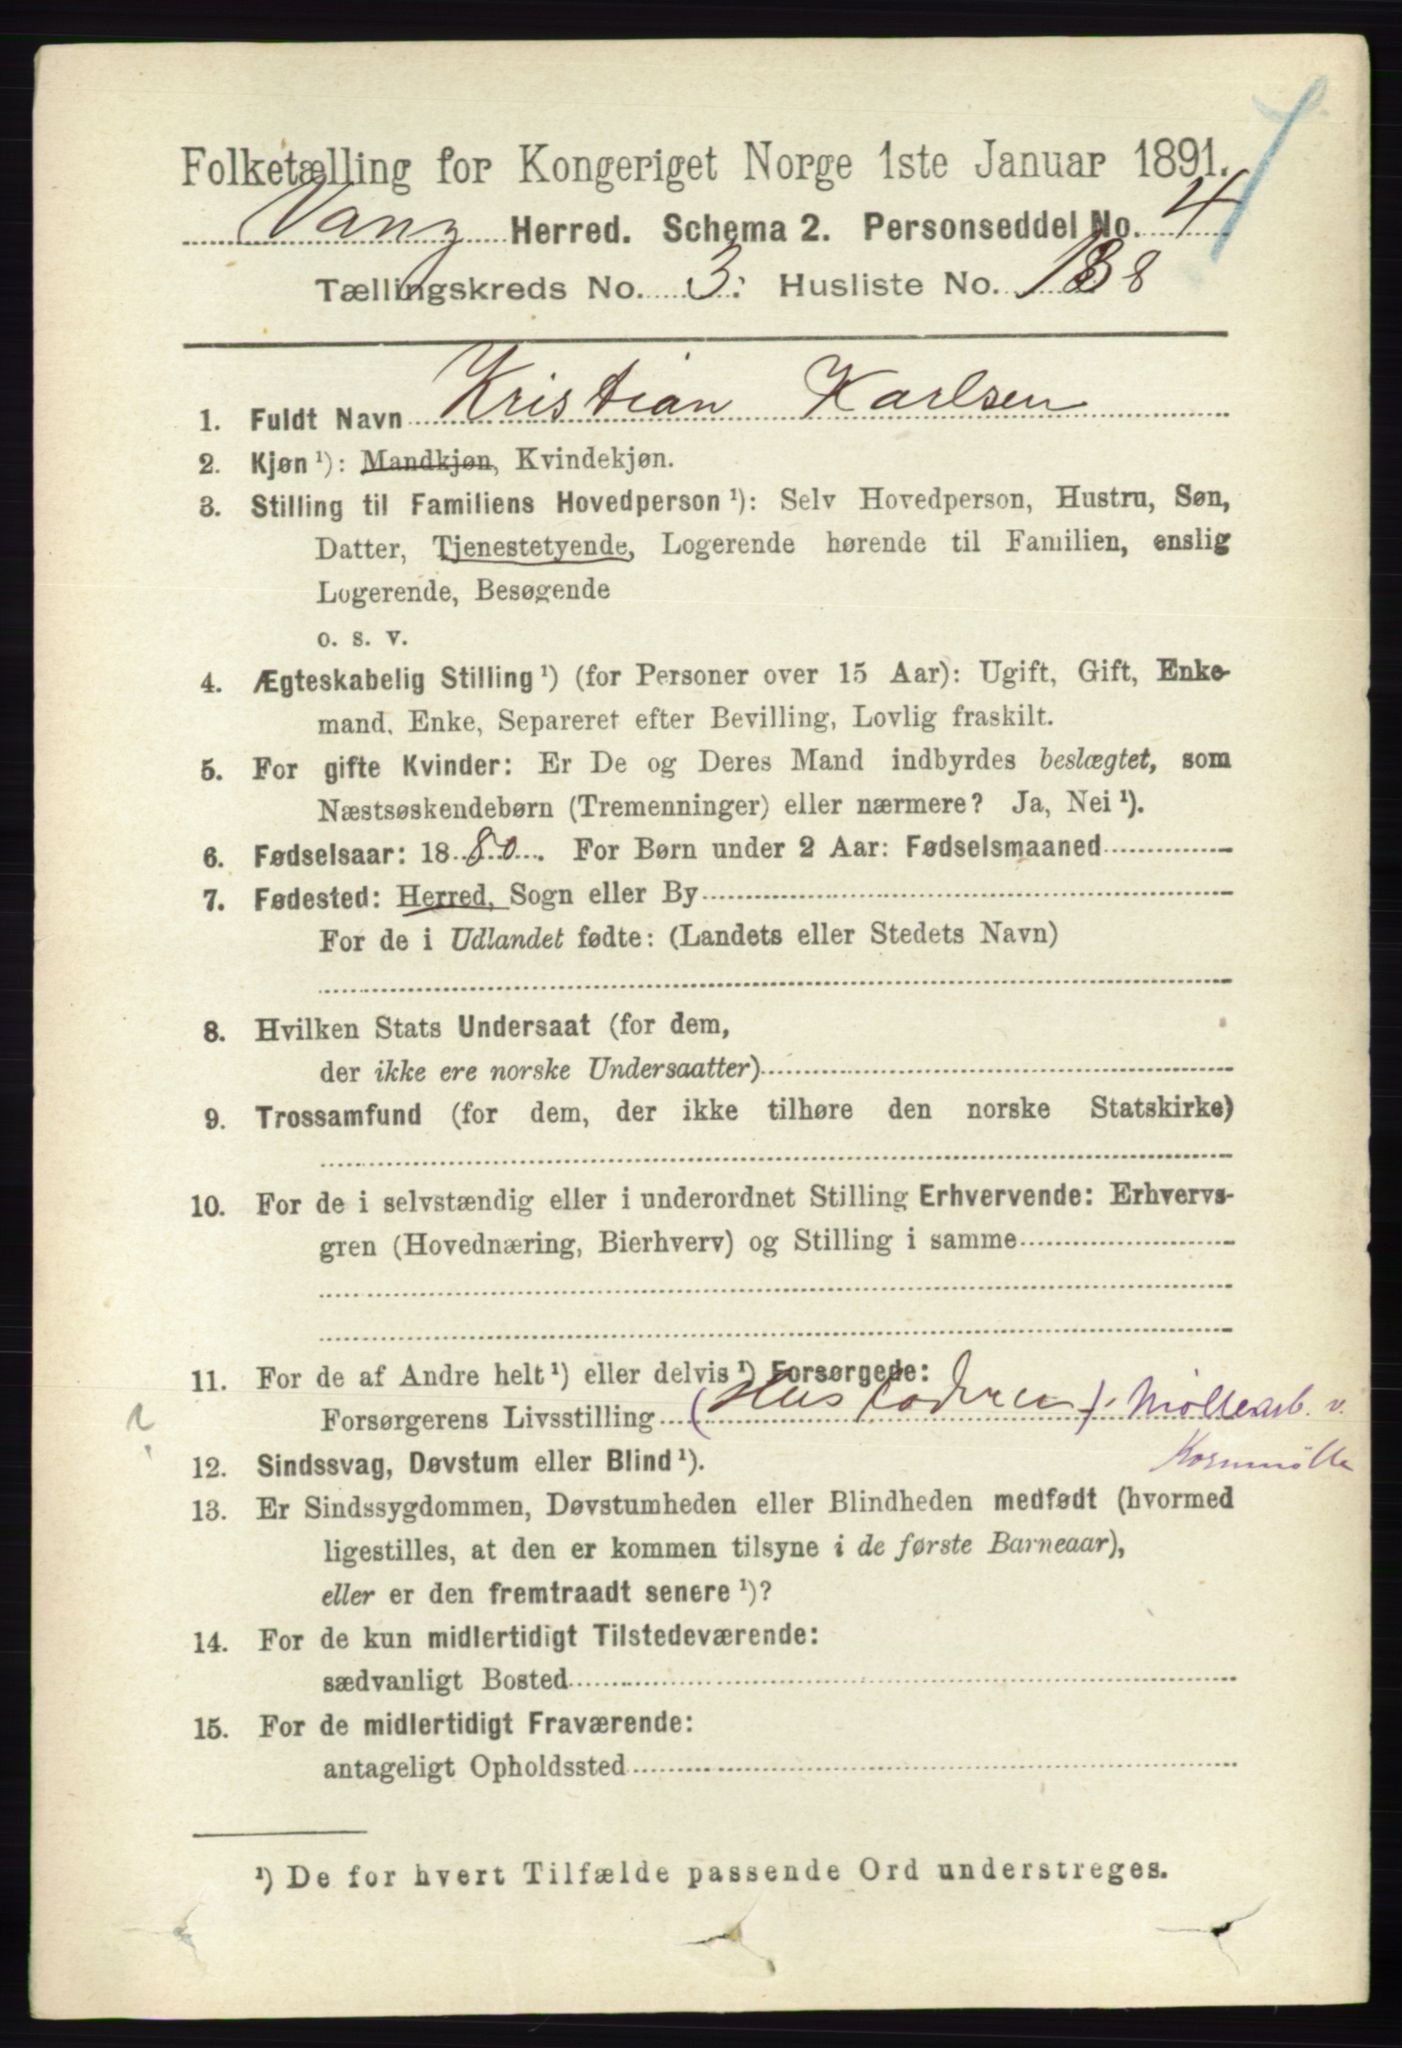 Folketælling for Kongeriget Norge 1ste Januar 1891.
Vang Herred. Schema 2. Personseddel No. 4
Tællingskreds No. 3. Husliste No. 138
1. Fuldt Navn Kristian Karlsen
2. Kjøn¹): Mandkjøn, Kvindekjøn.
3. Stilling til Familiens Hovedperson¹): Selv Hovedperson, Hustru, Søn,
Datter, Tjenestetyende, Logerende hørende til Familien, enslig
Logerende, Besøgende
o. s. v.
4. Ægteskabelig Stilling¹) (for Personer over 15 Aar): Ugift, Gift, Enke-
mand, Enke, Separeret efter Bevilling, Lovlig fraskilt.
5. For gifte Kvinder: Er De og Deres Mand indbyrdes beslægtet, som
Næstsøskendebørn (Tremenninger) eller nærmere? Ja, Nei¹).
6. Fødselsaar: 1880. For Børn under 2 Aar: Fødselsmaaned
7. Fødested: Herred, Sogn eller By
For de i Udlandet fødte: (Landets eller Stedets Navn)
8. Hvilken Stats Undersaat (for dem,
der ikke ere norske Undersaatter)
9. Trossamfund (for dem, der ikke tilhøre den norske Statskirke)
10. For de i selvstændig eller i underordnet Stilling Erhvervende: Erhvervs-
gren (Hovednæring, Bierhverv) og Stilling i samme
11. For de af Andre helt¹) eller delvis¹) Forsørgede:
Forsørgerens Livsstilling (Husfaderen). Møllearb. v.
Kornmølle
12. Sindssvag, Døvstum eller Blind¹).
13. Er Sindssygdommen, Døvstumheden eller Blindheden medfødt (hvormed
ligestilles, at den er kommen tilsyne i de første Barneaar),
eller er den fremtraadt senere¹)?
14. For de kun midlertidigt Tilstedeværende:
sædvanligt Bosted
15. For de midlertidigt Fraværende:
antageligt Opholdssted
¹) De for hvert Tilfælde passende Ord understreges.